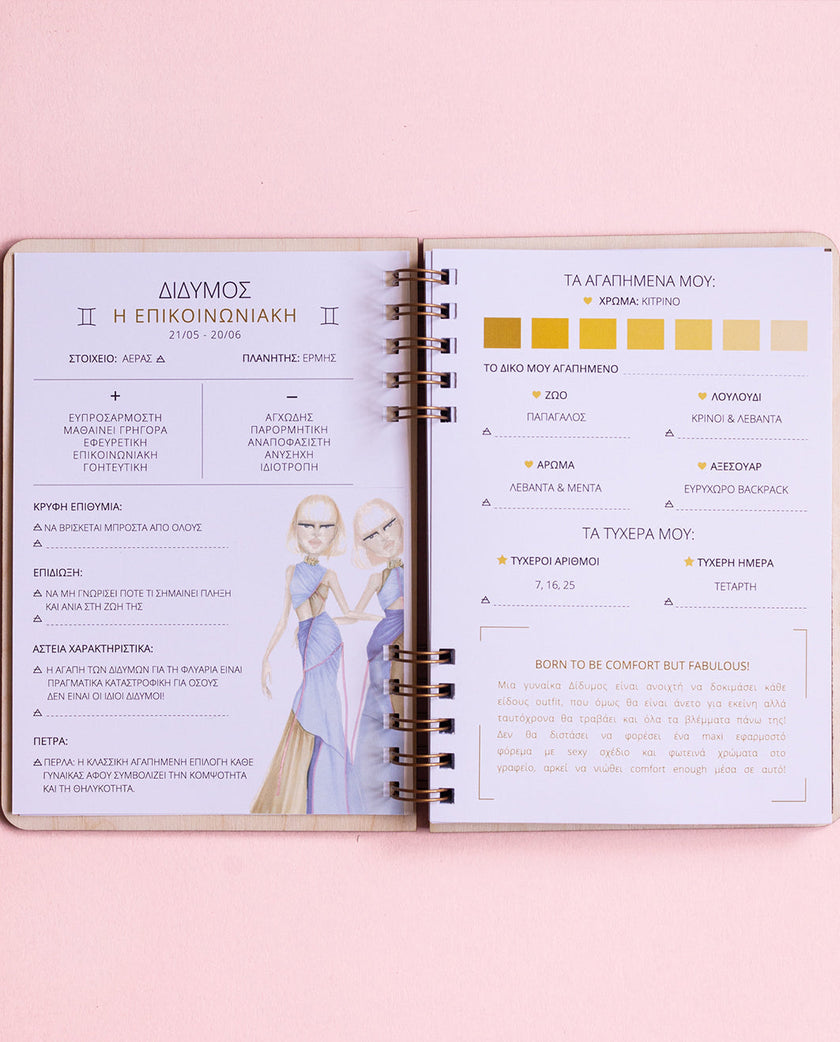 ΔΙΔΥΜΟΣ
♊ Η ΕΠΙΚΟΙΝΩΝΙΑΚΗ ♊
21/05 - 20/06
ΣΤΟΙΧΕΙΟ: ΑΕΡΑΣ ΠΛΑΝΗΤΗΣ: ΕΡΜΗΣ
+
ΕΥΠΡΟΣΑΡΜΟΣΤΗ
ΜΑΘΑΙΝΕΙ ΓΡΗΓΟΡΑ
ΕΦΕΥΡΕΤΙΚΗ
ΕΠΙΚΟΙΝΩΝΙΑΚΗ
ΓΟΗΤΕΥΤΙΚΗ
–
ΑΓΧΩΔΗΣ
ΠΑΡΟΡΜΗΤΙΚΗ
ΑΝΑΠΟΦΑΣΙΣΤΗ
ΑΝΥΣΗΧΗ
ΙΔΙΟΤΡΟΠΗ
ΚΡΥΦΗ ΕΠΙΘΥΜΙΑ:
ΝΑ ΒΡΙΣΚΕΤΑΙ ΜΠΡΟΣΤΑ ΑΠΟ ΟΛΟΥΣ
ΕΠΙΔΙΩΞΗ:
ΝΑ ΜΗ ΓΝΩΡΙΣΕΙ ΠΟΤΕ ΤΙ ΣΗΜΑΙΝΕΙ ΠΛΗΞΗ
ΚΑΙ ΑΝΙΑ ΣΤΗ ΖΩΗ ΤΗΣ
ΑΣΤΕΙΑ ΧΑΡΑΚΤΗΡΙΣΤΙΚΑ:
Η ΑΓΑΠΗ ΤΩΝ ΔΙΔΥΜΩΝ ΓΙΑ ΤΗ ΦΛΥΑΡΙΑ ΕΙΝΑΙ
ΠΡΑΓΜΑΤΙΚΑ ΚΑΤΑΣΤΡΟΦΙΚΗ ΓΙΑ ΟΣΟΥΣ
ΔΕΝ ΕΙΝΑΙ ΟΙ ΙΔΙΟΙ ΔΙΔΥΜΟΙ!
ΠΕΤΡΑ:
ΠΕΡΛΑ: Η ΚΛΑΣΣΙΚΗ ΑΓΑΠΗΜΕΝΗ ΕΠΙΛΟΓΗ ΚΑΘΕ
ΓΥΝΑΙΚΑΣ ΑΦΟΥ ΣΥΜΒΟΛΙΖΕΙ ΤΗΝ ΚΟΜΨΟΤΗΤΑ
ΚΑΙ ΤΗ ΘΗΛΥΚΟΤΗΤΑ.
ΤΑ ΑΓΑΠΗΜΕΝΑ ΜΟΥ:
ΧΡΩΜΑ: ΚΙΤΡΙΝΟ
ΤΟ ΔΙΚΟ ΜΟΥ ΑΓΑΠΗΜΕΝΟ
ΖΩΟ
ΠΑΠΑΓΑΛΟΣ
ΛΟΥΛΟΥΔΙ
ΚΡΙΝΟΙ & ΛΕΒΑΝΤΑ
ΑΡΩΜΑ
ΛΕΒΑΝΤΑ & ΜΕΝΤΑ
ΑΞΕΣΟΥΑΡ
ΕΥΡΥΧΩΡΟ BACKPACK
ΤΑ ΤΥΧΕΡΑ ΜΟΥ:
ΤΥΧΕΡΟΙ ΑΡΙΘΜΟΙ
7, 16, 25
ΤΥΧΕΡΗ ΗΜΕΡΑ
ΤΕΤΑΡΤΗ
BORN TO BE COMFORT BUT FABULOUS!
Μια γυναίκα Δίδυμος είναι ανοιχτή να δοκιμάσει κάθε
είδους outfit, που όμως θα είναι άνετο για εκείνη αλλά
ταυτόχρονα θα τραβάει και όλα τα βλέμματα πάνω της!
Δεν θα διστάσει να φορέσει ένα maxi εφαρμοστό
φόρεμα με sexy σχέδιο και φωτεινά χρώματα στο
γραφείο, αρκεί να νιώθει comfort enough μέσα σε αυτό!